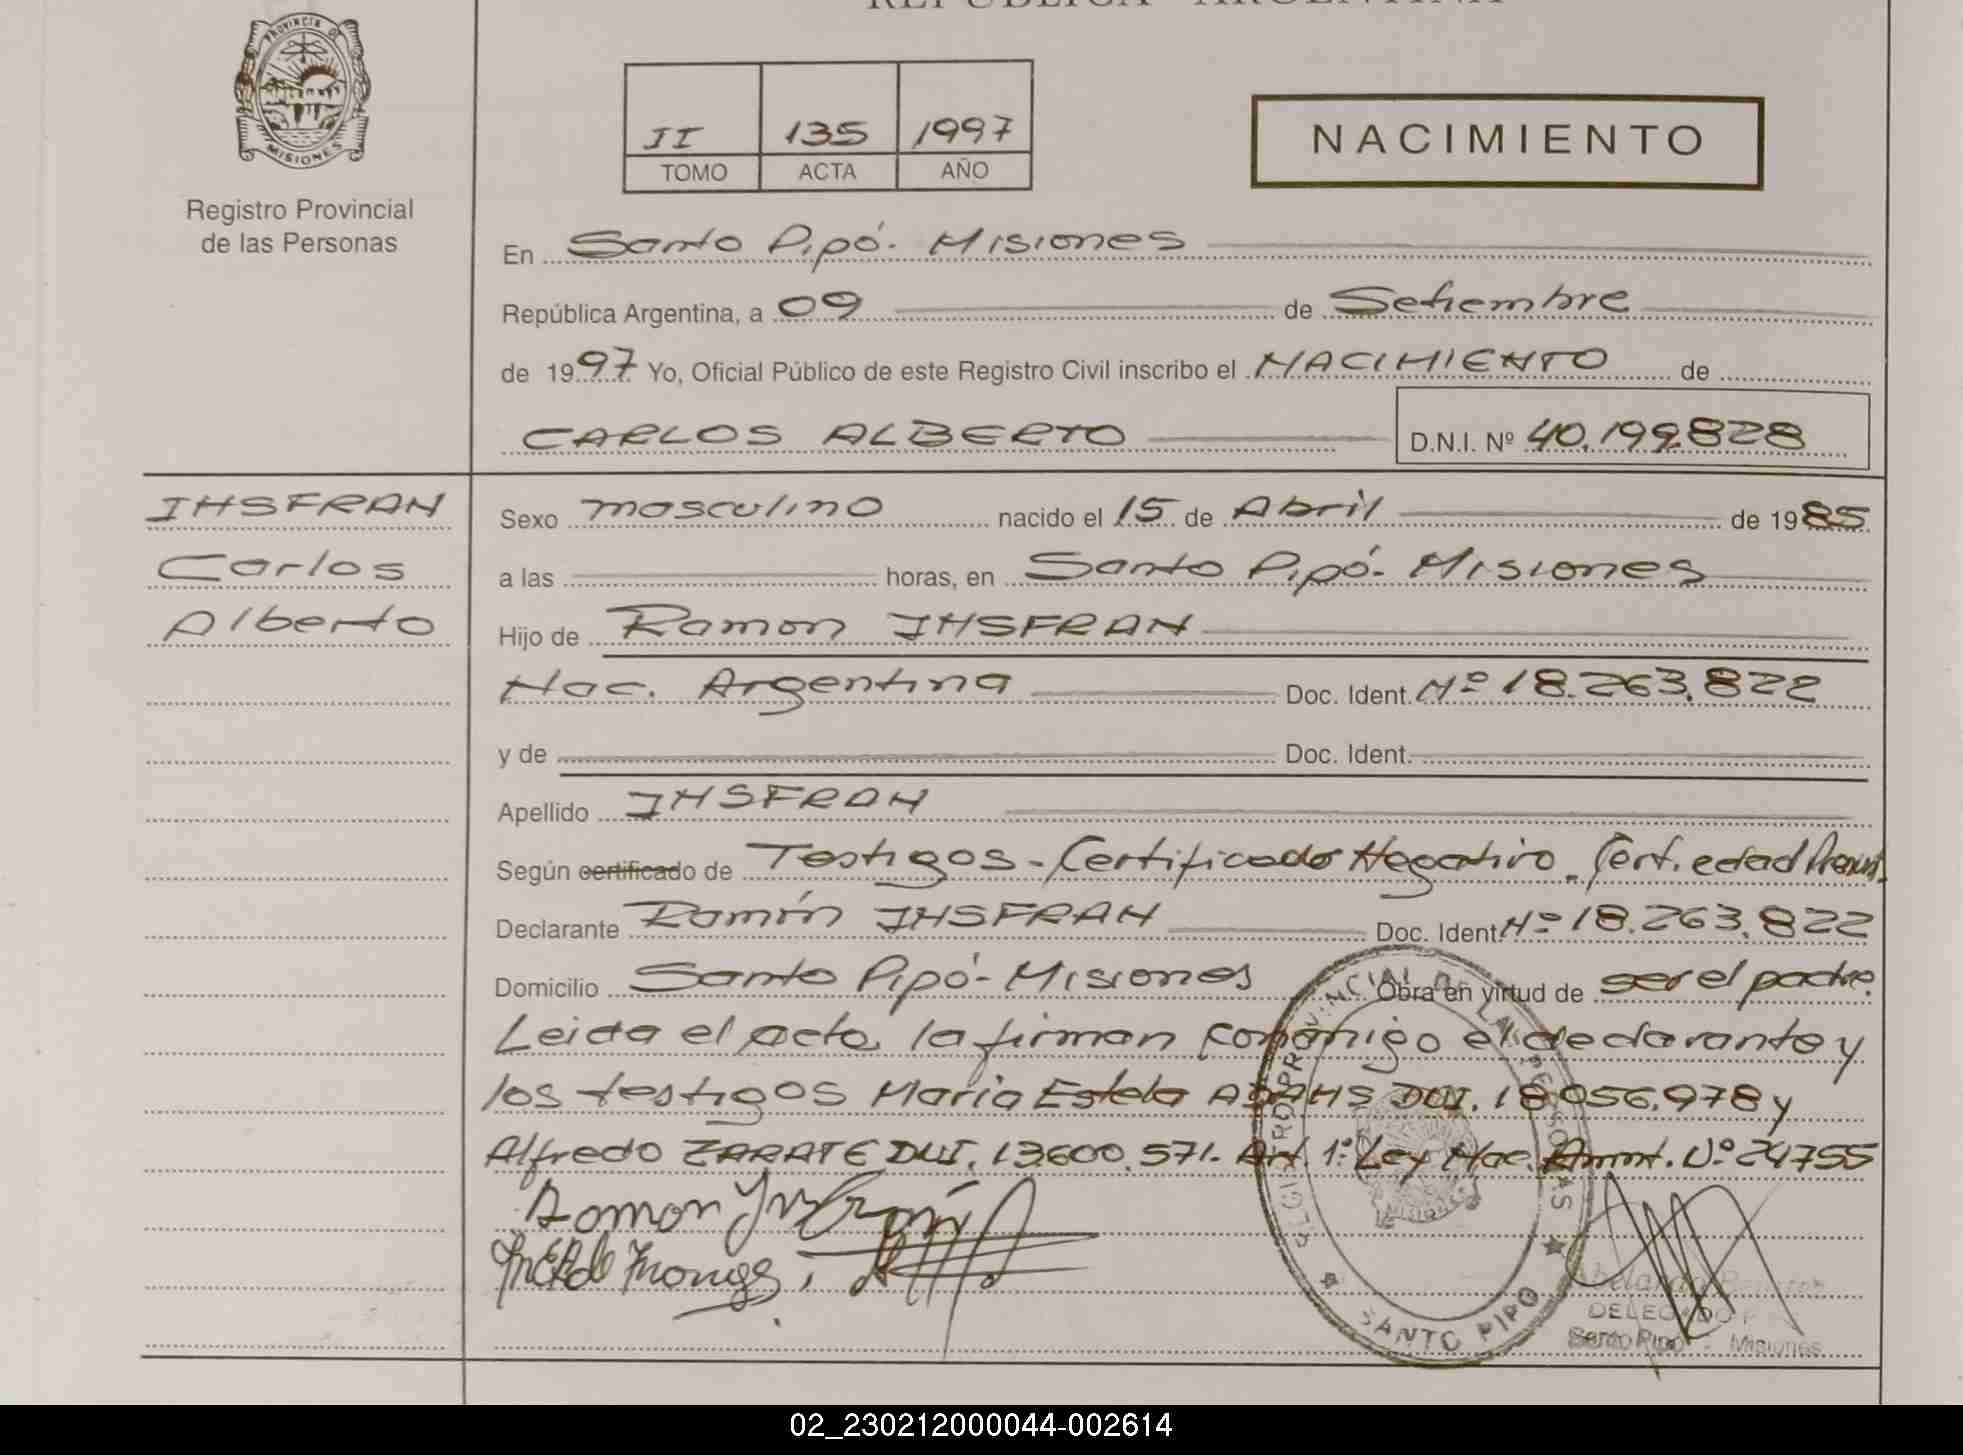 REPUBLICA ARGENTINA
PROVINCIA DE
MISIONES
Registro Provincial
de las Personas
II 135 1997
TOMO ACTA AÑO
NACIMIENTO
En Santo Pipó - Misiones
República Argentina, a 09 de Setiembre
de 1997 Yo, Oficial Público de este Registro Civil inscribo el NACIMIENTO de
CARLOS ALBERTO D.N.I. Nº 40.199.828
IHSFRAN
Carlos
Alberto
Sexo masculino nacido el 15 de Abril de 1985
a las horas, en Santo Pipó - Misiones
Hijo de Ramon IHSFRAN
Nac. Argentina Doc. Ident. Nº 18.263.822
y de Doc. Ident.
Apellido IHSFRAN
Según certificado de Testigos - Certificado Negativo - Cert. edad
Declarante Ramón IHSFRAN Doc. Ident. Nº 18.263.822
Domicilio Santo Pipó - Misiones Obra en virtud de ser el padre.
Leida el acta, la firman conmigo el declarante y
los testigos Maria Estela ADAMS DNI. 18.056.978 y
Alfredo ZARATE DNI. 13.600.571. Art. 1º Ley Nac. Amnt. Nº 24755
Ramon
REGISTRO PROVINCIAL DE LAS PERSONAS
SANTO PIPO
Abelardo
DELEGADO
Santo Pipó - Misiones
02_230212000044-002614